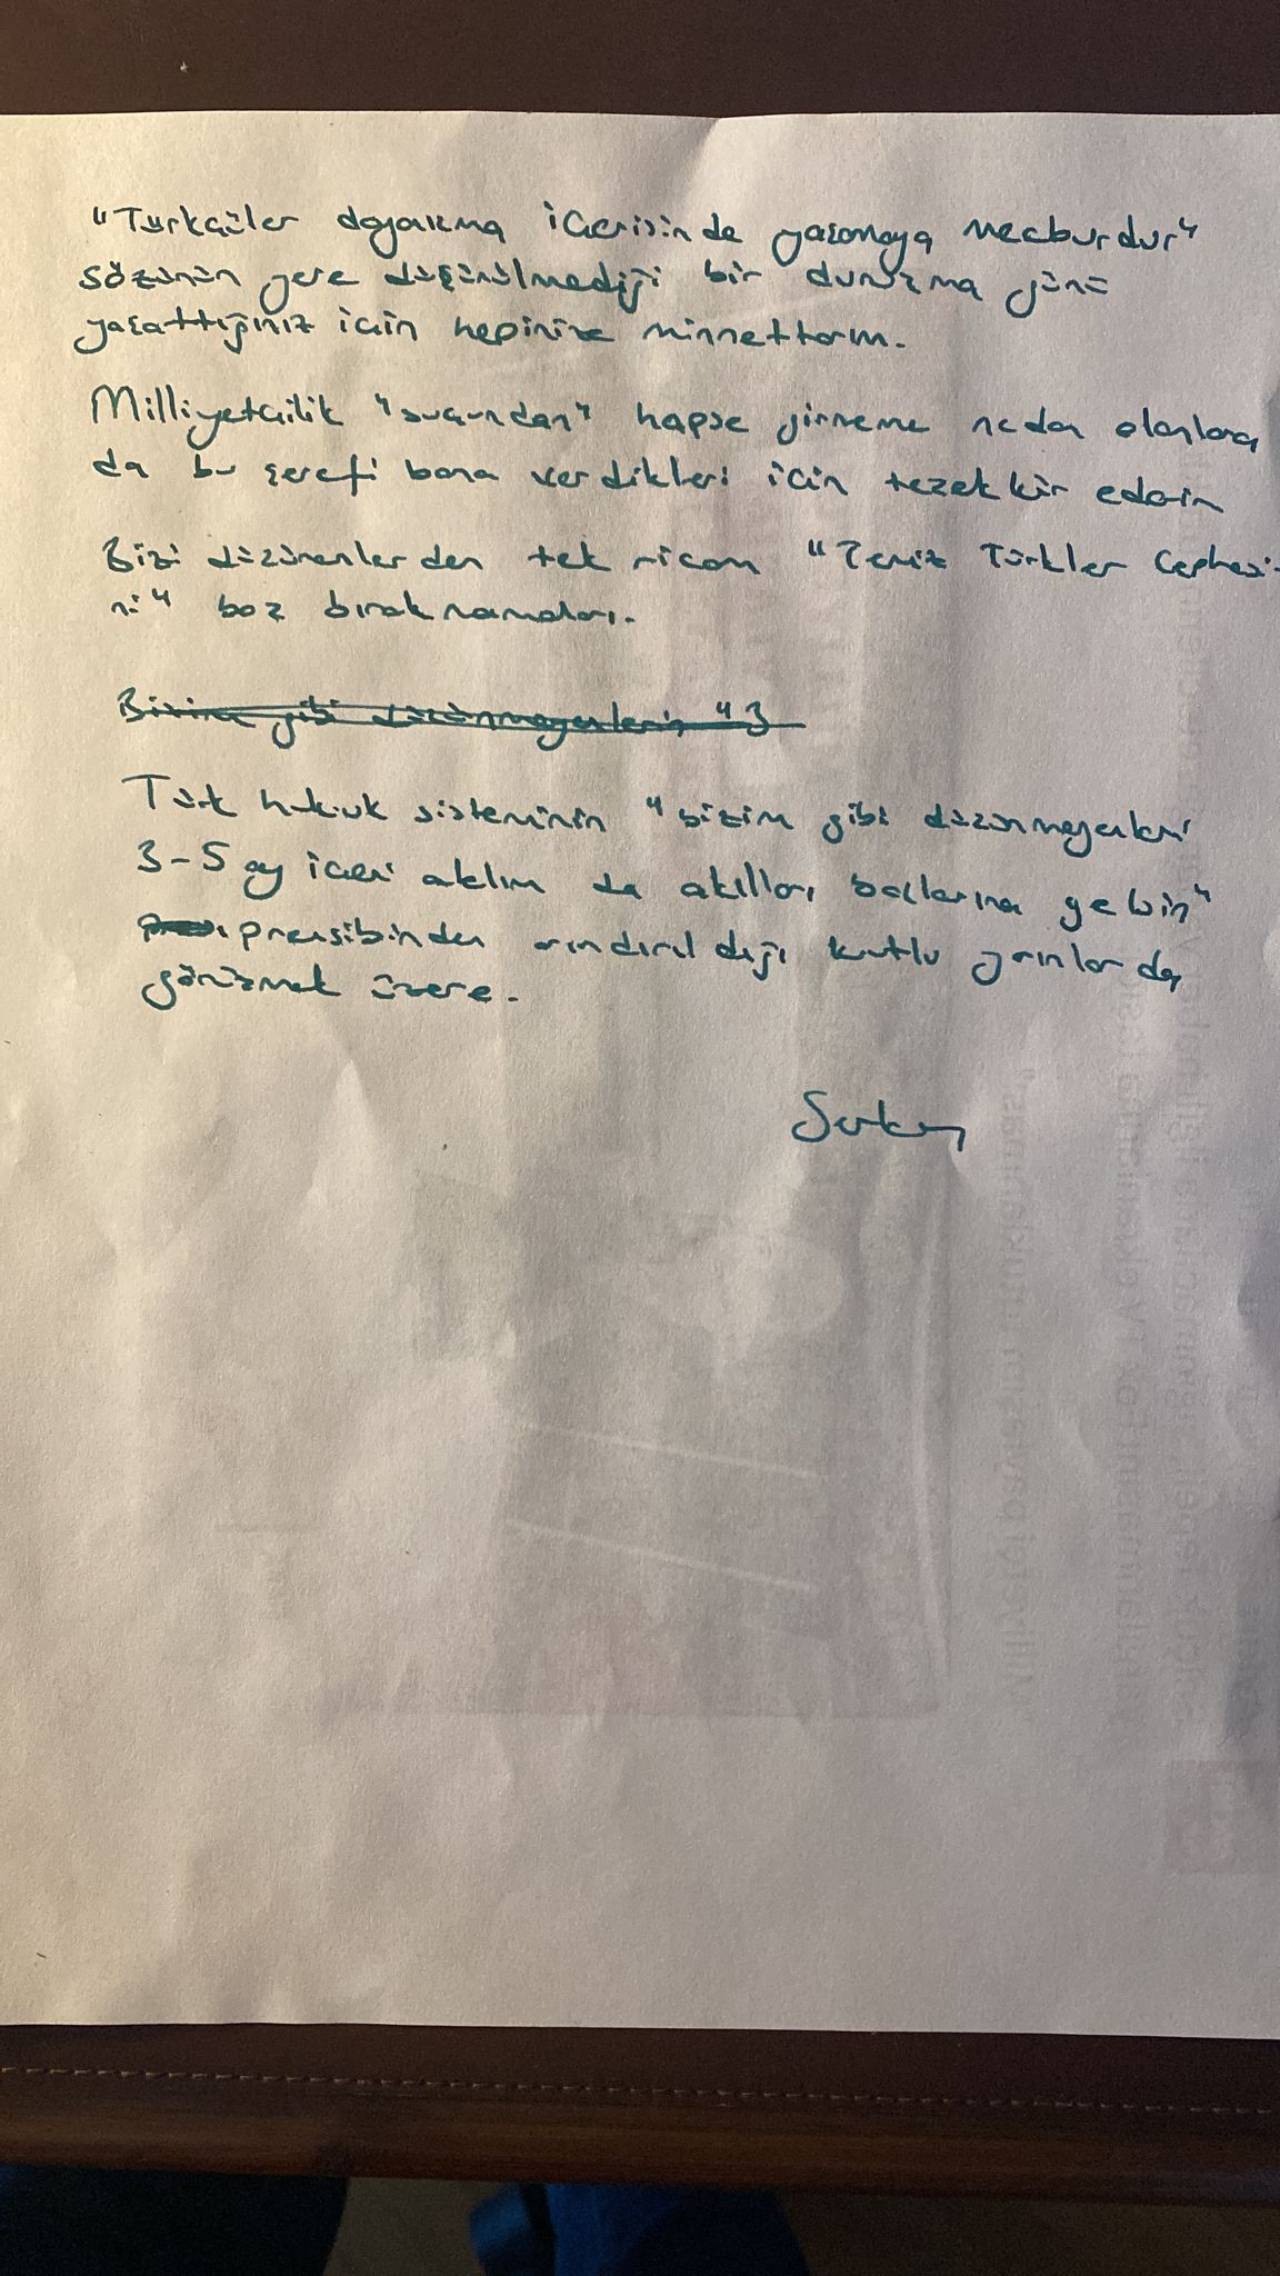 "Türkçüler dayanışma içerisinde yaşamaya mecburdur"
sözünün yere düşürülmediği bir duruşma günü
yaşattığınız için hepinize minnettarım.
Milliyetçilik "suçundan" hapse girmeme neden olanlara
da bu şerefi bana verdikleri için teşekkür ederim
Bizi düşünenlerden tek ricam "Temiz Türkler Cephesi-
ni" boş bırakmamaları.
Bizim gibi düşünmeyenlerin "3
Türk hukuk sisteminin "bizim gibi düşünmeyenleri
3-5 ay içeri alalım da akılları başlarına gelsin"
prensibinden arındırıldığı kutlu yarınlarda
görüşmek üzere.
Serkan